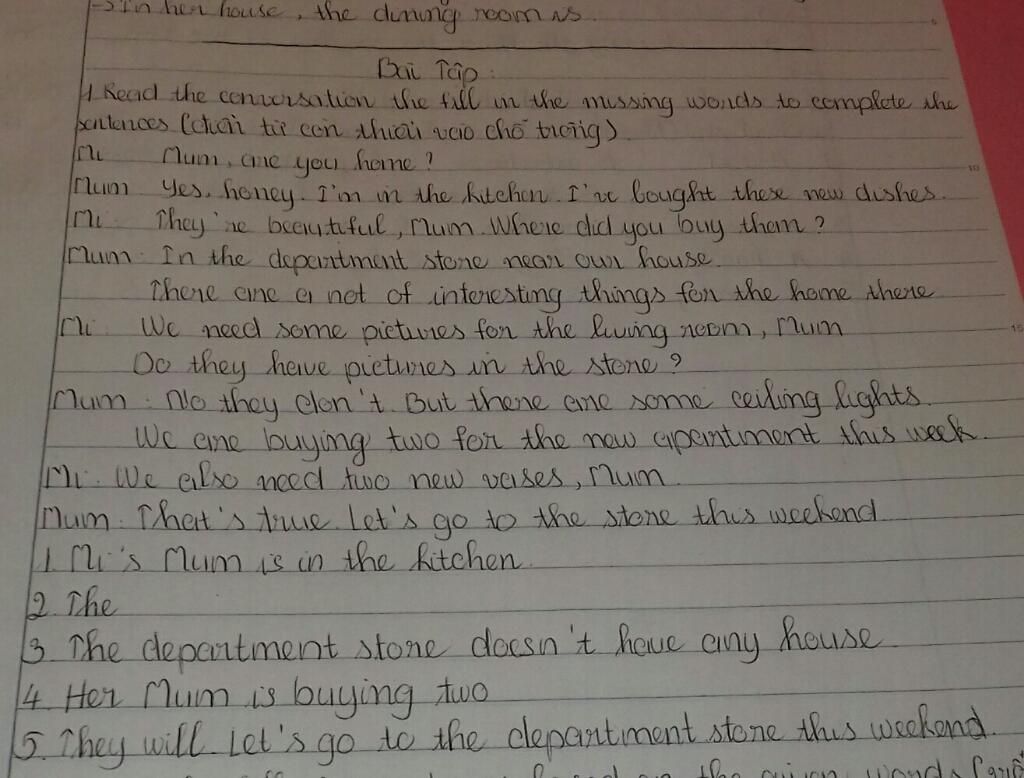 → In her house, the dining room is
Bài Tập:
1 Read the conversation the fill in the missing words to complete the
sentences (chọn từ còn thiếu vào chỗ trống)
Mi Mum, are you home?
Mum Yes, honey. I'm in the kitchen. I've bought these new dishes.
Mi: They're beautiful, Mum. Where did you buy them?
Mum: In the department store near our house.
There are a not of interesting things for the home there
Mi: We need some pictures for the living room, Mum
Do they have pictures in the store?
Mum: No they don't. But there are some ceiling lights.
We are buying two for the new apartment this week.
Mi: We also need two new vases, Mum.
Mum: That's true. Let's go to the store this weekend
1. Mi's Mum is in the kitchen.
2. The
3. The department store doesn't have any house
4. Her Mum is buying two
5. They will let's go to the department store this weekend.
on the given words